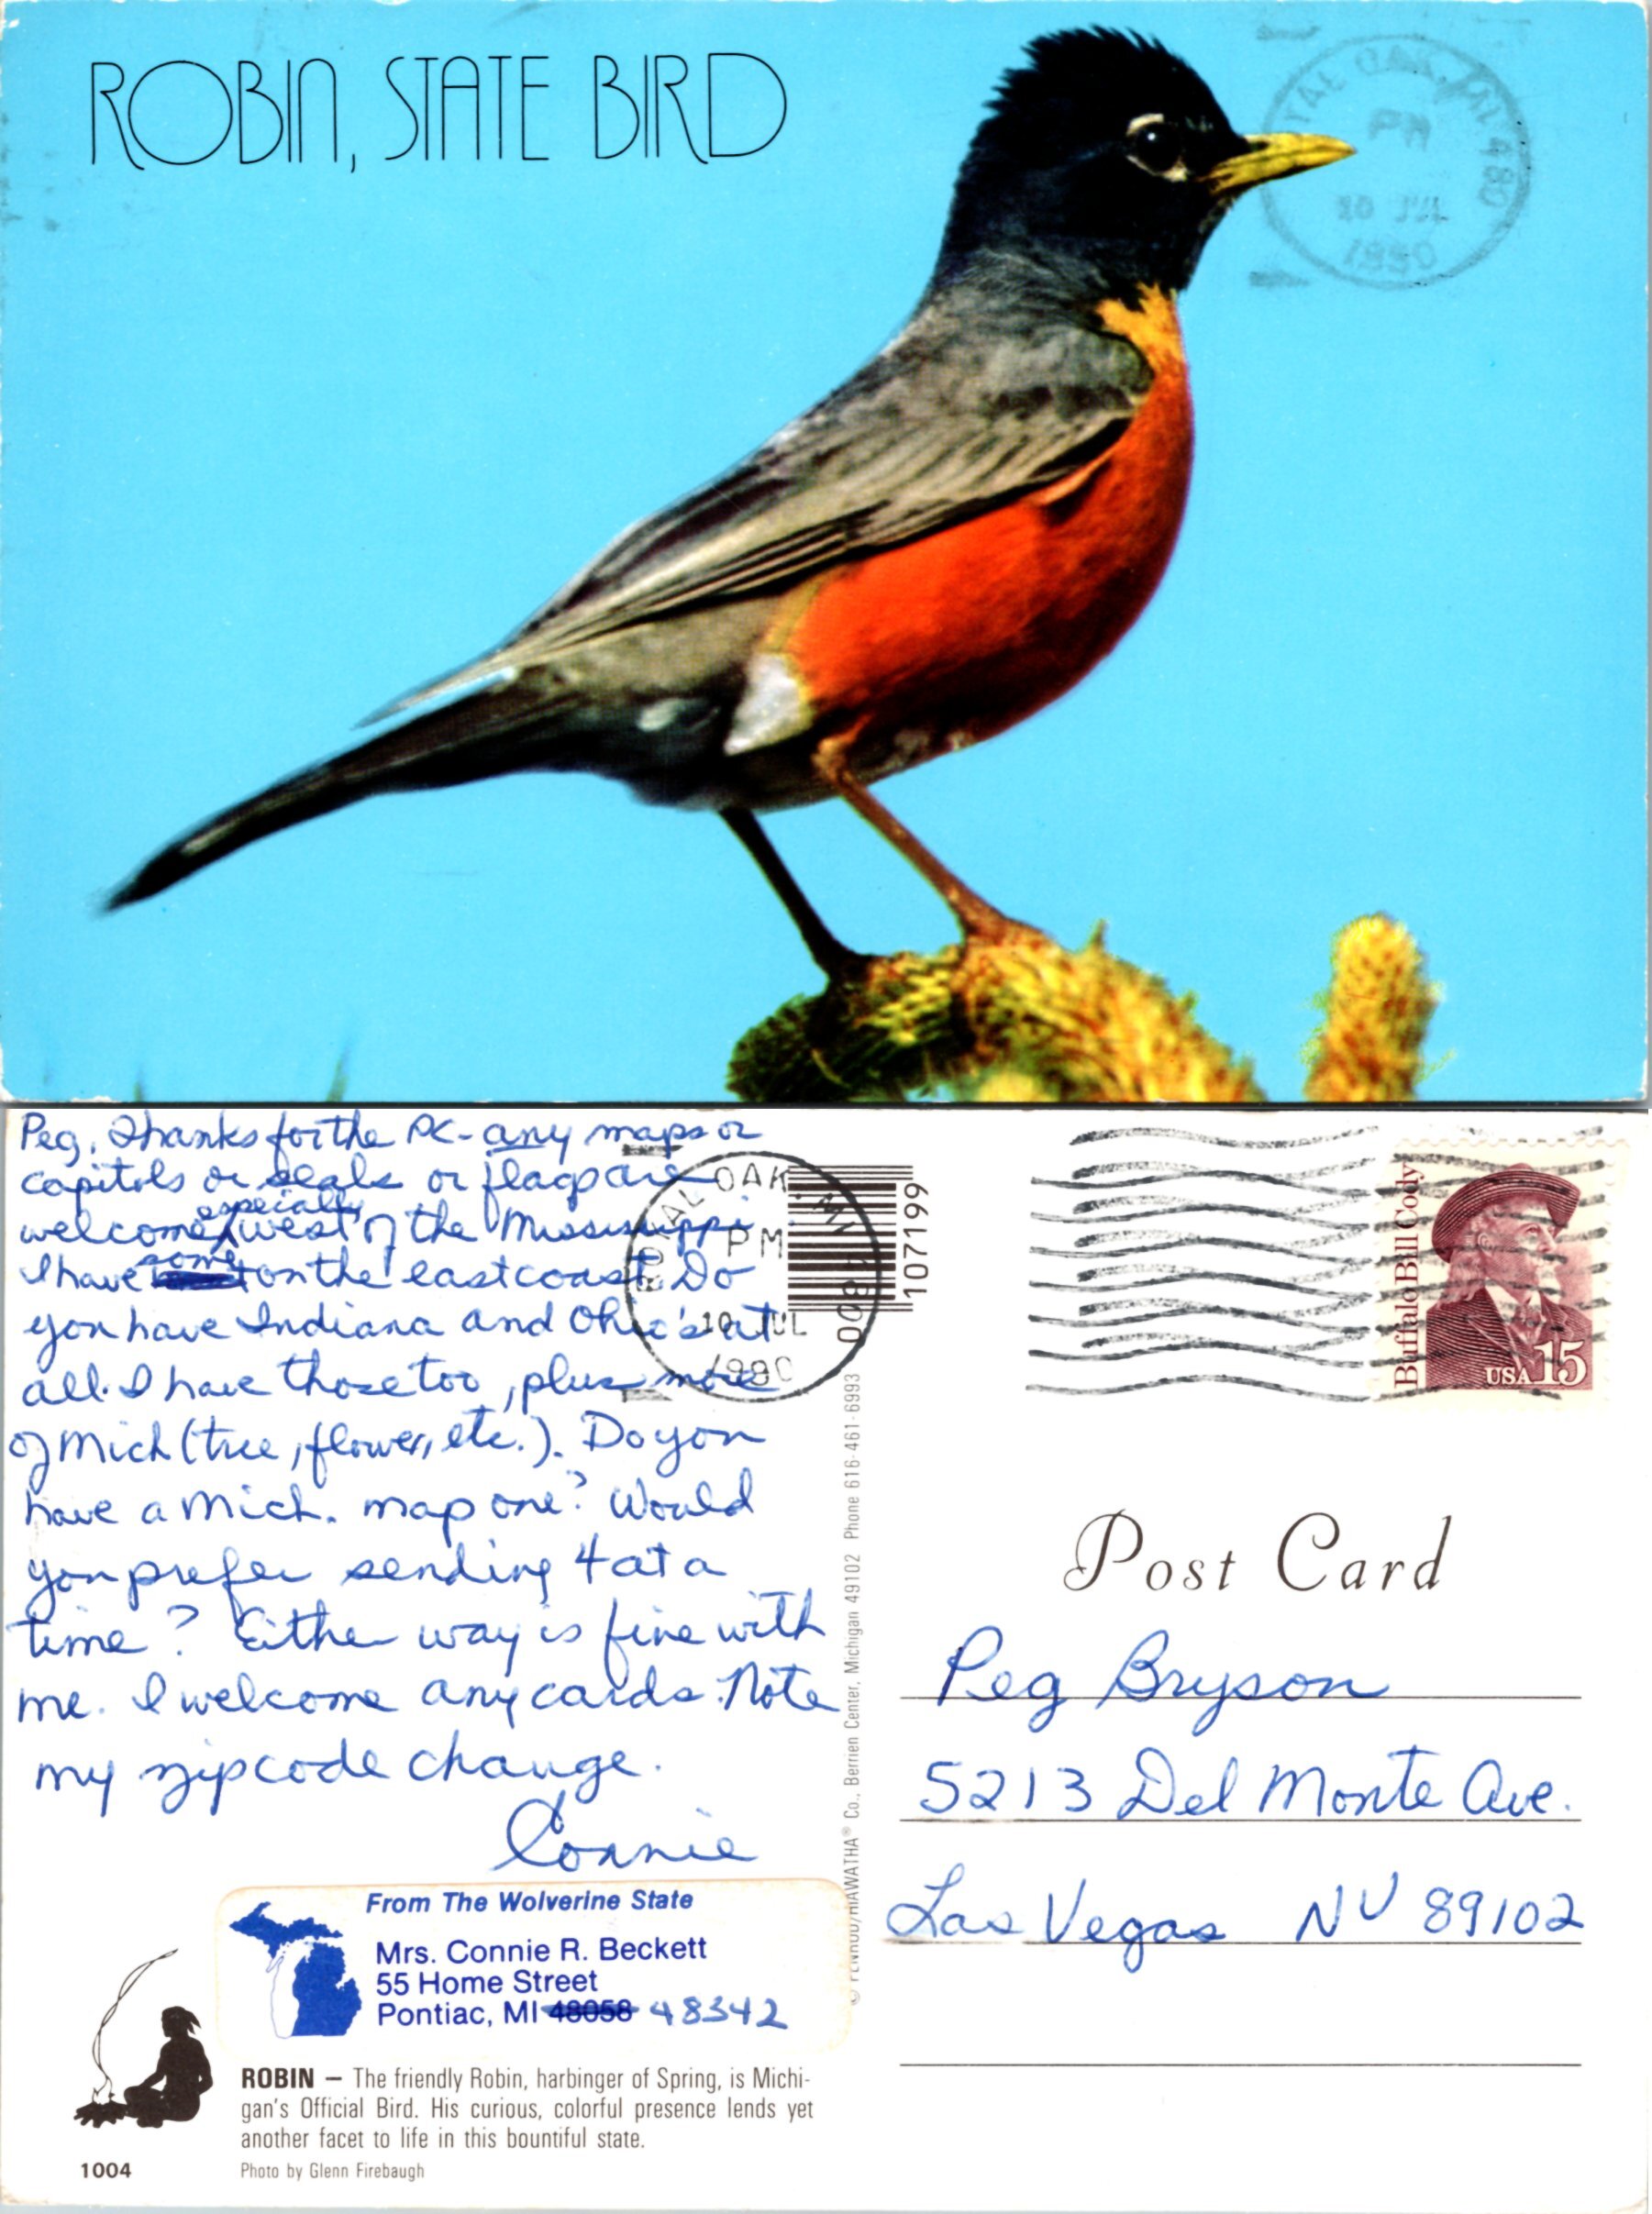 ROBIN, STATE BIRD
Peg, Thanks for the PC - any maps or
capitols or seals or flags are
welcome, especially west of the Mississippi
I have some on the east coast. Do
you have Indiana and Ohio's at
all. I have those too, plus more
of Mich (tree, flower, etc.). Do you
have a Mich. map one? Would
you prefer sending 4 at a
time? Either way is fine with
me. I welcome any cards. Note
my zipcode change.
Connie
From The Wolverine State
Mrs. Connie R. Beckett
55 Home Street
Pontiac, MI 48058 48342
ROBIN — The friendly Robin, harbinger of Spring, is Michi-
gan's Official Bird. His curious, colorful presence lends yet
another facet to life in this bountiful state.
1004
Photo by Glenn Firebaugh
ROYAL OAK, MI 480
PM
10 JUL
107199
Co., Berrien Center, Michigan 49102 Phone 616-461-6993
Buffalo Bill Cody
USA 15
Post Card
Peg Bryson
5213 Del Monte Ave.
Las Vegas NV 89102